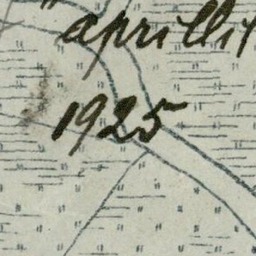 "aprillil
1925